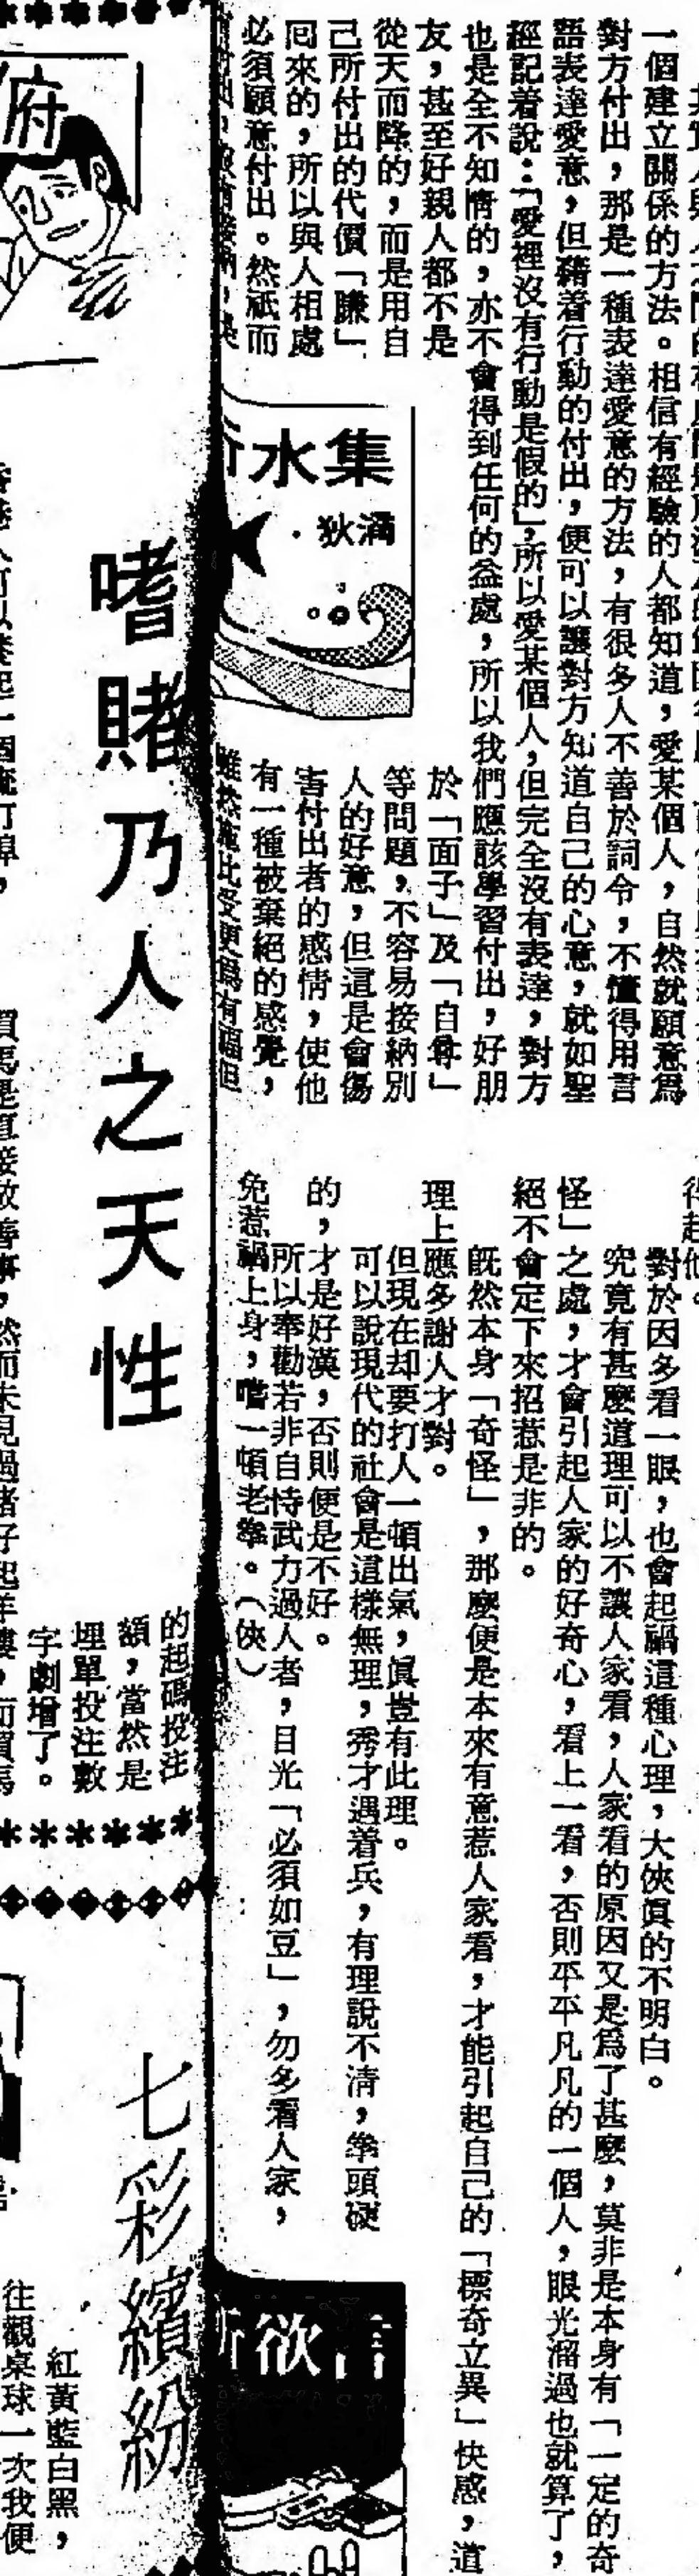 一個建立關係的方法。相信有經驗的人都知道,愛某個人,自然就願意為
對方付出,那是一種表達愛意的方法,有很多人不善於詞令,不懂得用言
語表達愛意,但藉着行動的付出,便可以讓對方知道自己的心意,就如聖
經記着說:「愛裡沒有行動是假的」,所以愛某個人,但完全沒有表達,對方
也是全不知情的,亦不會得到任何的益處,所以我們應該學習付出,好朋
友,甚至好親人都不是
從天而降的,而是用自
己所付出的代價「賺」
回來的,所以與人相處
必須願意付出。然祇而
集水
滿狄.
於「面子」及「自尊」
等問題,不容易接納別
人的好意,但這是會傷
害付出者的感情,使他
有一種被棄絕的感覺,
雖然施比受更為有福但
得起他。
對於因多看一眼,也會起禍這種心理,大俠眞的不明白。
究竟有甚麼道理可以不讓人家看,人家看的原因又是為了甚麼,莫非是本身有「一定的奇
怪」之處,才會引起人家的好奇心,看上一看,否則平平凡凡的一個人,眼光溜過也就算了,
絕不會定下來招惹是非的。
既然本身「奇怪」,那麼便是本來有意惹人家看,才能引起自己的「標奇立異」快感,道
理上應多謝人才對。
但現在却要打人一頓出氣,眞豈有此理。
可以說現代的社會是這樣無理,秀才遇着兵,有理說不清,拳頭硬
的,才是好漢,否則便是不好。
所以奉勸若非自恃武力過人者,目光「必須如豆」,勿多看人家,
免惹禍上身,嚐一頓老拳。(俠)
言欲
府
嗜賭乃人之天性
的起碼投注
額,當然是
埋單投注數
字劇增了。
七彩繽紛
紅黃藍白黑,
往觀桌球一次我便